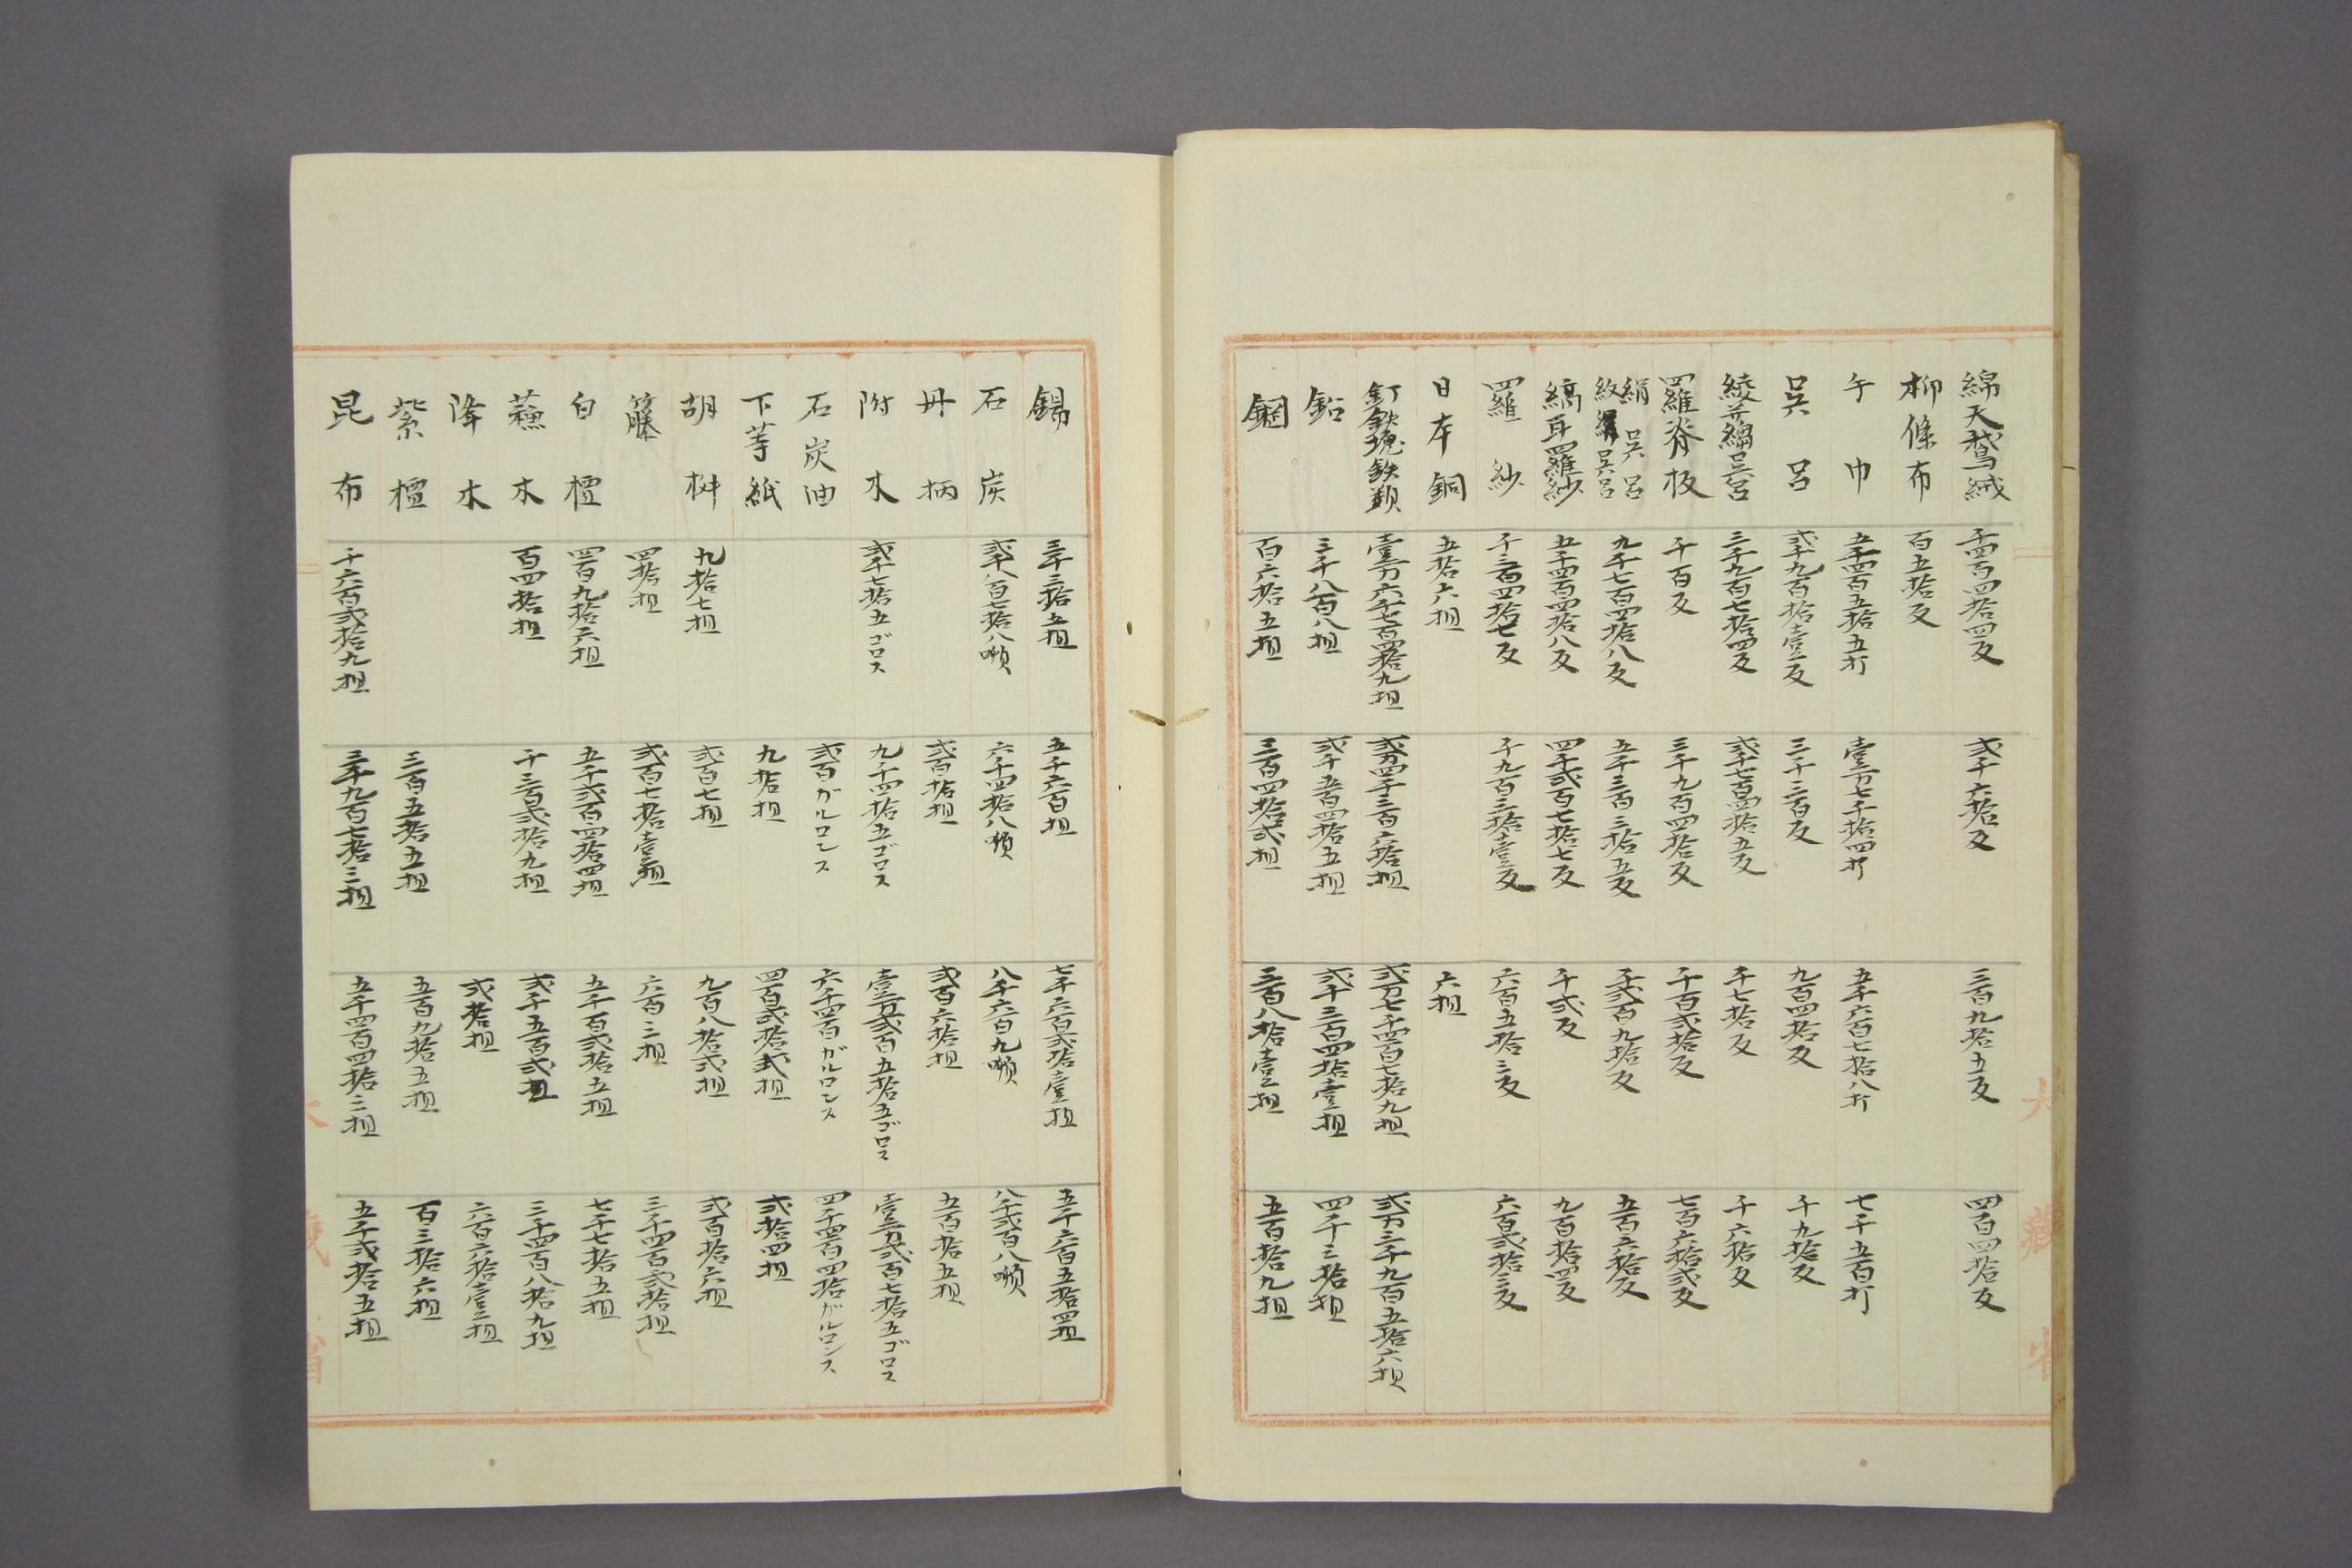 綿天鵞絨 千四百四拾四反 弐千六拾反 三百九拾五反 四百四拾反
柳條布 百五拾反
手巾 五千四百五拾五打 壹万七千拾四打 五千六百七拾八打 七千五百打
呉呂 弐千九百拾壹反 三千三百反 九百四拾反 千九拾反
綾并繻呉呂 三千九百七拾四反 弐千七百四拾五反 千七拾反 千六拾反
羅脊板 千百反 三千九百四拾反 千百弐拾反 七百六拾弐反
絹呉呂
紋絹呉呂 九千七百四拾八反 五千三百三拾五反 千弐百九拾反 五百六拾反
縞耳羅紗 五千四百四拾八反 四千弐百七拾七反 千弐反 九百拾四反
羅紗 千三百四拾七反 千九百三拾壹反 六百五拾三反 六百弐拾三反
日本銅 五拾六担 六担
釘鉄塊鉄類 壹万六千七百四拾九担 弐万四千三百六拾担 弐万七千四百七拾九担 弐万三千九百五拾六担
鉛 三千八百八担 弐千五百四拾五担 弐千三百四拾壹担 四千三拾担
鋼 百六拾五担 三百四拾弐担 三百八拾壹担 五百拾九担
大藏省
錫 三千三拾五担 五千六百担 七千六百弐拾壹担 五千六百五拾四担
石炭 弐千八百七拾八噸 六千四拾八噸 八千六百九噸 八千弐百八噸
丹柄 弐百拾担 弐百六拾担 五百拾五担
附木 弐千七拾五ゴロス 九千四拾五ゴロス 壹万弐百五拾五ゴロス 壹万弐百七拾五ゴロス
石炭油 弐百ガルロンス 六千四百ガルロンス 四千四百四拾ガルロンス
下等紙 九拾担 四百弐拾弐担 弐拾四担
胡椒 九拾七担 弐百七担 九百八拾弐担 弐百拾六担
籐 四拾担 弐百七拾壹担 六百三担 三千四百弐拾担
白檀 四百九拾六担 五千弐百四拾四担 五千百弐拾五担 七千七拾五担
蘓木 百四拾担 千三百弐拾九担 弐千五百弐担 三千四百八拾九担
降木 弐拾担 六百六拾壹担
紫檀 三百五拾五担 五百九拾五担 百三拾六担
昆布 千六百弐拾九担 三千九百七拾三担 五千四百四拾三担 五千弐拾五担
大藏省